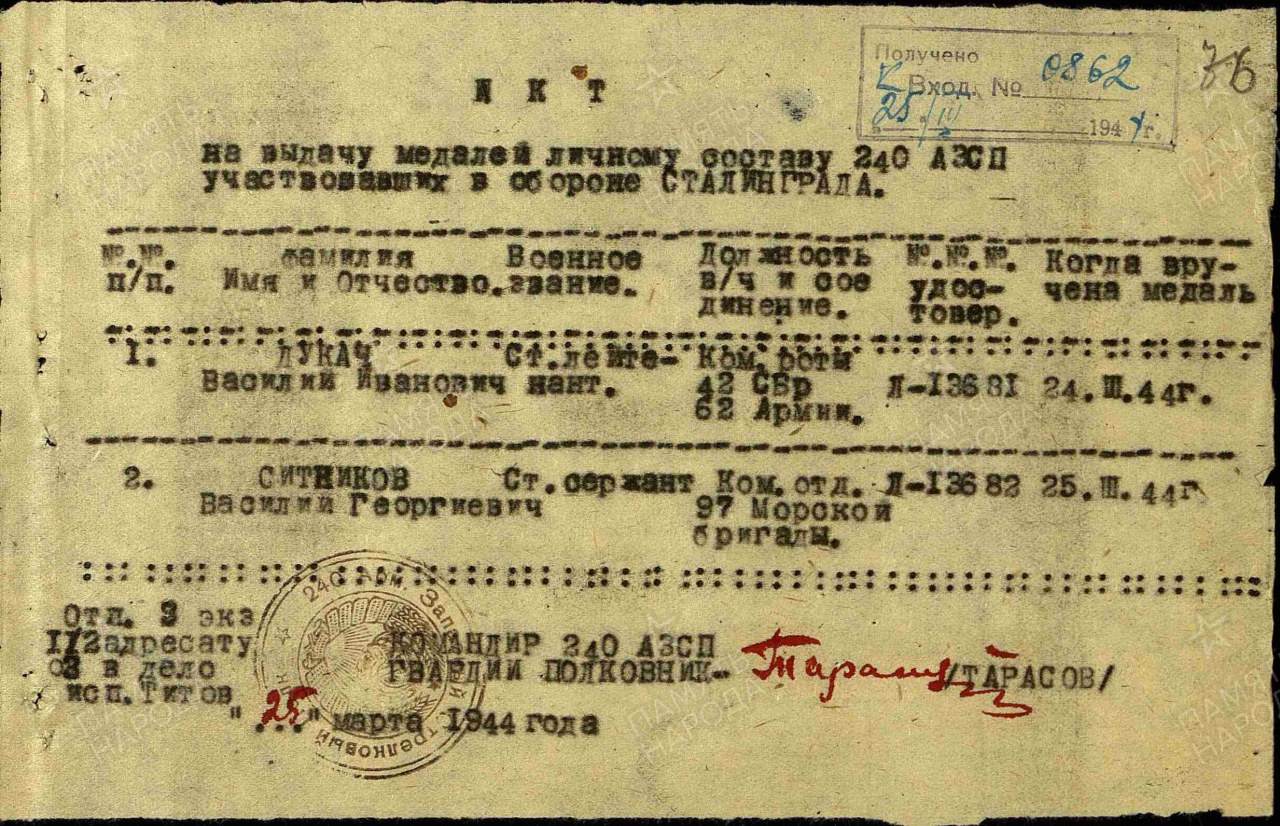 Получено
Вход. № 0862
25/III 1944г.
76
АКТ
на выдачу медалей личному составу 240 АЗСП
участвовавших в обороне СТАЛИНГРАДА.
№.№. фамилия Военное Должность №.№.№. Когда вру-
п/п. Имя и Отчество. звание. в/ч и сое удос- чена медаль
динение. товер.
1. ЛУКАЧ Ст.лейте- Ком. роты
Василий Иванович нант. 42 СБр Л-13681 24.Ш.44г.
62 Армии.
2. СИТНИКОВ Ст.сержант Ком.отд. Л-13682 25.Ш.44г
Василий Георгиевич 97 Морской
бригады.
Отп. 3 экз
1/2адресату КОМАНДИР 240 АЗСП
в дело ГВАРДИИ ПОЛКОВНИК- Тарасов /ТАРАСОВ/
исп.Титов
"25" марта 1944 года
240 Арм. Запасной Стрелковый
ПАМЯТЬ НАРОДА